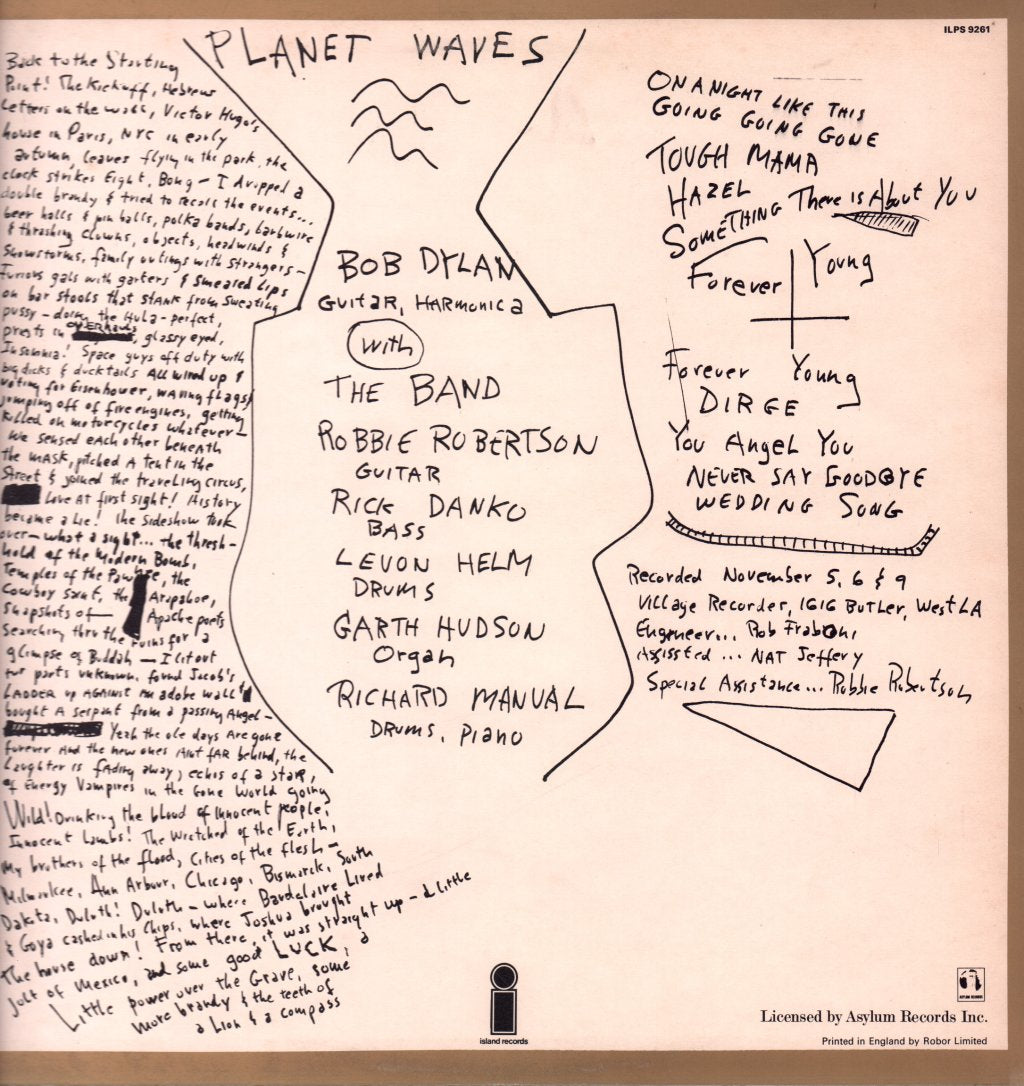 ILPS 9261
PLANET WAVES
Back to the Starting
Point! The Kickoff, Hebrew
Letters on the wall, Victor Hugo's
house in Paris, NYC in early
autumn, leaves flying in the park, the
clock strikes Eight, Bong – I dripped a
double brandy & tried to recall the events...
beer halls & pin balls, polka bands, barbwire
& thrashing clowns, objects, headwinds &
Snowstorms, family outings with strangers –
Furious gals with garters & smeared Lips
on bar stools that stank from sweating
pussy – doing the Hula – perfect,
priests in OVERHAULS, glassy eyed,
Insomnia! Space guys off duty with
big dicks & ducktails All wired up &
voting for Eisenhower, waving flags &
jumping off of fire engines, getting
killed on motorcycles whatever –
We sensed each other beneath
the MASK, pitched A tent in the
Street & joined the traveling circus,
Love At first sight! History
became a lie! The sideshow took
over – what a sight... the thresh-
hold of the Modern Bomb,
Temples of the Pawnee, the
Cowboy saint, the Arapahoe,
Snapshots of – Apache poets
Searching thru the ruins for a
glimpse of Buddah – I lit out
for parts unknown, found Jacob's
LADDER up AGAINST an adobe wall &
bought A serpant from a passing Angel –
Yeah the ole days Are gone
forever And the new ones Aint fAR behind, the
Laughter is fAding away, echos of a star,
of Energy Vampires in the Gone World going
Wild! Drinking the blood of Innocent people,
Innocent Lambs! The Wretched of the Earth,
My brothers of the flood, Cities of the flesh –
Milwaukee, Ann Arbour, Chicago, Bismarck, South
Dakota, Duluth! Duluth – where Baudelaire Lived
& Goya cashed in his Chips, where Joshua brought
The house down! From there, it was straight up – a little
jolt of Mexico, and some good LUCK, a
Little power over the Grave, some
more brandy & the teeth of
a Lion & a compass
BOB DYLAN
GUITAR, HARMONICA
With
THE BAND
ROBBIE ROBERTSON
GUITAR
RICK DANKO
BASS
LEVON HELM
DRUMS
GARTH HUDSON
Organ
RICHARD MANUAL
DRUMS, PIANO
ON A NIGHT LIKE THIS
GOING GOING GONE
TOUGH MAMA
HAZEL
SOMETHING There is About You
Forever Young
Forever Young
DIRGE
You Angel You
NEVER SAY GOODBYE
WEDDING SONG
Recorded November 5, 6 & 9
Village Recorder, 1616 Butler, West LA
Engineer... Rob Fraboni
Assissted ... NAT Jeffery
Special Assistance... Robbie Robertson
island records
ASYLUM RECORDS
Licensed by Asylum Records Inc.
Printed in England by Robor Limited